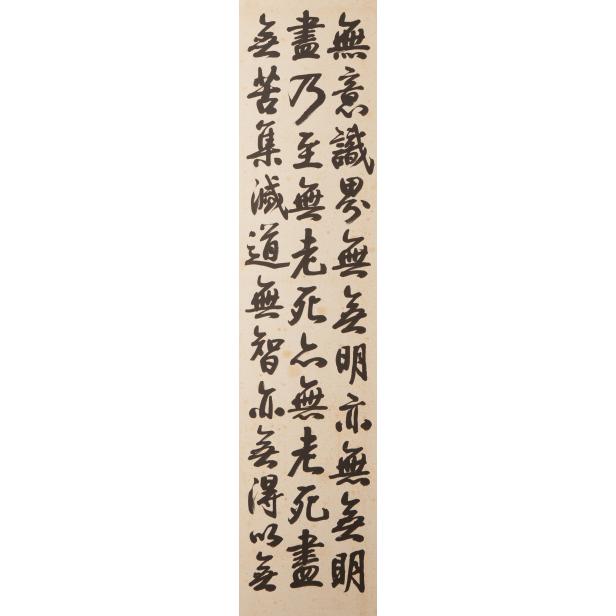 無意識界無無明亦無無明
盡乃至無老死亦無老死盡
無苦集滅道無智亦無得以無